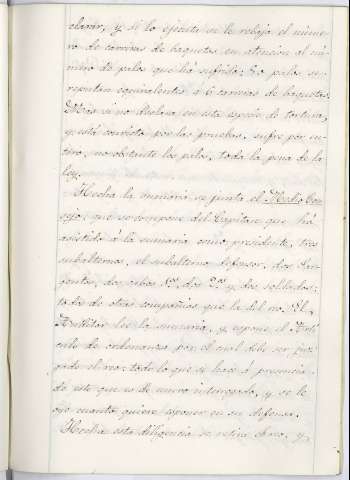 clarar, y si lo ejecuta se le rebaja el núme-
ro de carreras de baquetas en atencion al nú-
mero de palos que há sufrido: 50 palos se
reputan equivalentes á 6 carreras de baquetas.
Mas si no declara en esta especie de tortura,
y está convicto por las pruebas, sufre por en-
tero, no obstante los palos, toda la pena de la
ley.
Hecha la sumaria se junta el Medio Con-
sejo; que se compone del Capitan que há
asistido á la sumaria como presidente, tres
subalternos, el subalterno defensor, dos Sar-
gentos, dos cabos 1os, dos 2os y dos soldados:
todo de otras compañias que la del reo. El
Auditor lee la sumaria, y espone el Arti-
culo de ordenanza por el cual debe ser juz-
gado el reo: todo lo que se hace á presencia
de este que es de nuevo interrogado, y se le
oye cuanto quiere esponer en su defensa.
Hecha esta diligencia se retira el reo, y